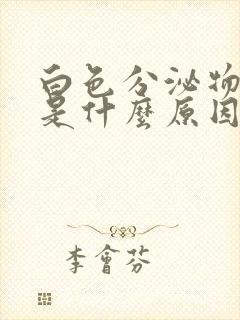 白色分泌物
是什麼原因
李會芬